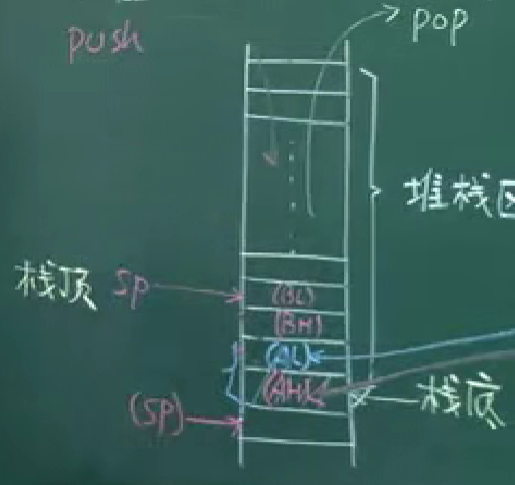 push
pop
堆栈区
栈顶 SP
(BL)
(BH)
(AL)
(AH)
栈底
(SP)